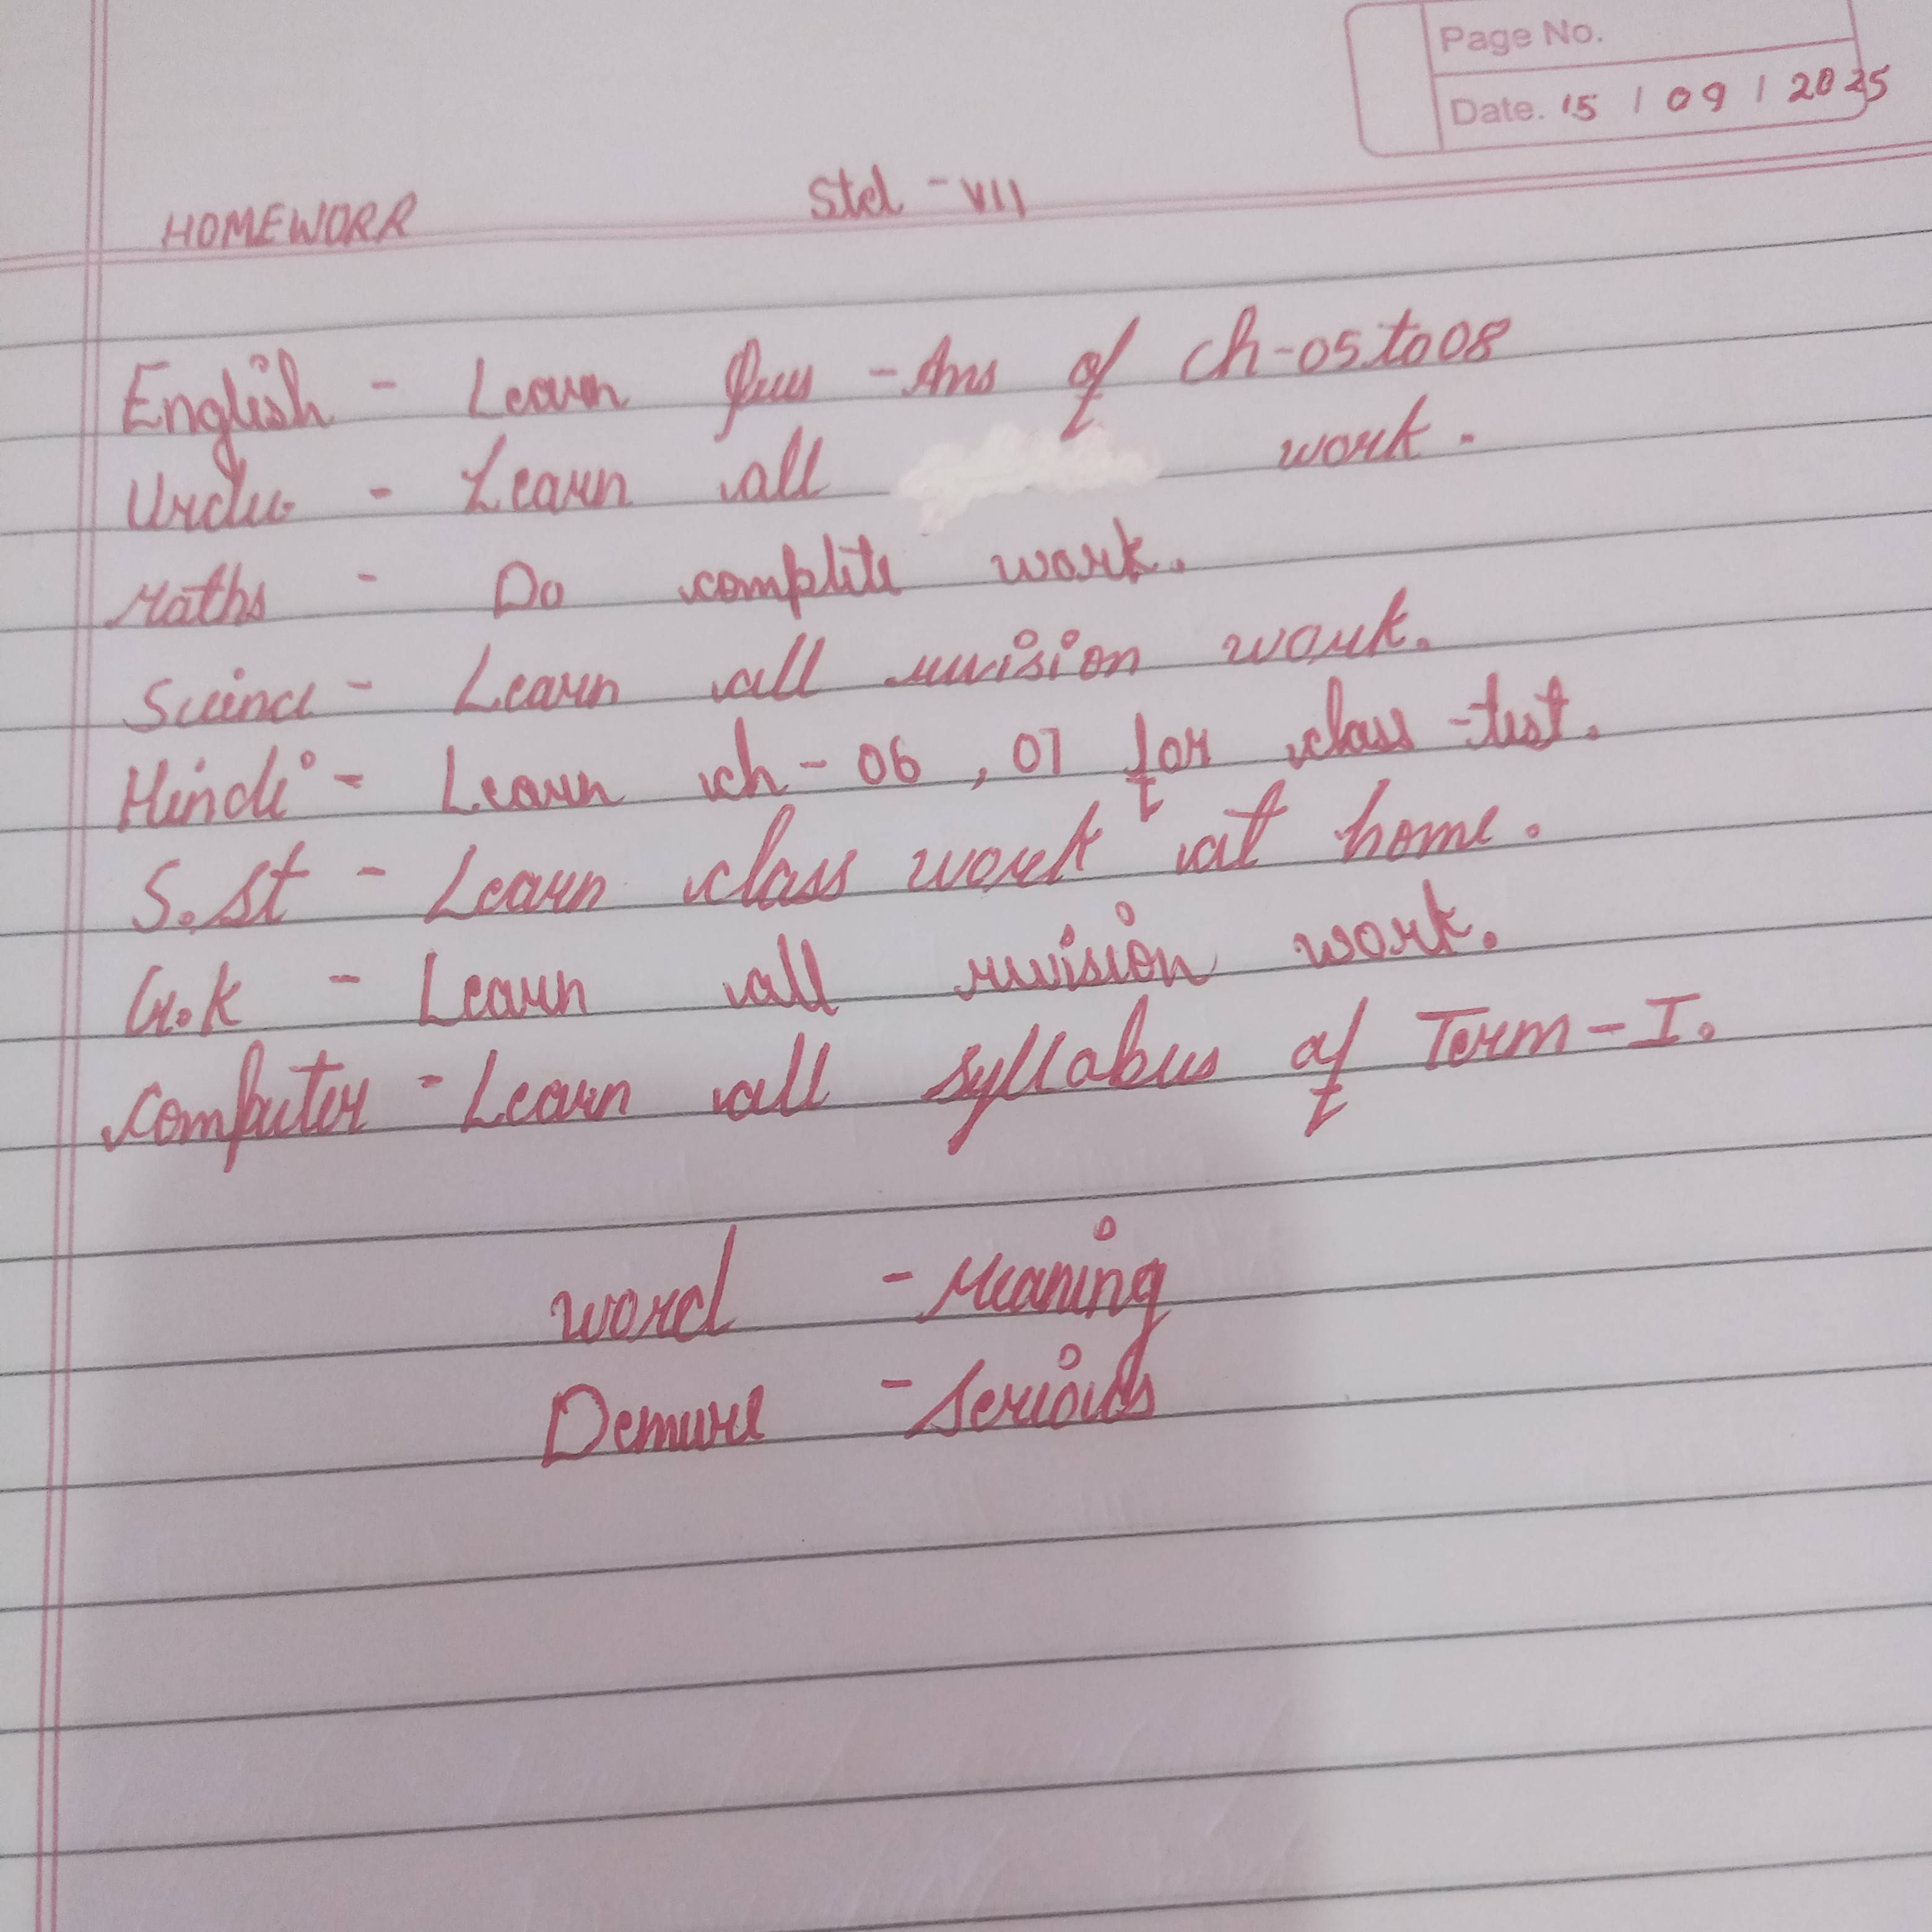 Page No.
Date. 15 / 09 / 2025
HOMEWORK Std - VII
English - Learn Ques - Ans of ch-05 to 08
Urdu - Learn all work.
Maths - Do complete work.
Science - Learn all revision work.
Hindi - Learn ch - 06, 07 for class - test.
S.St - Learn class work at home.
G.K - Learn all revision work.
Computer - Learn all syllabus of Term - I.
Word - Meaning
Demure - Serious